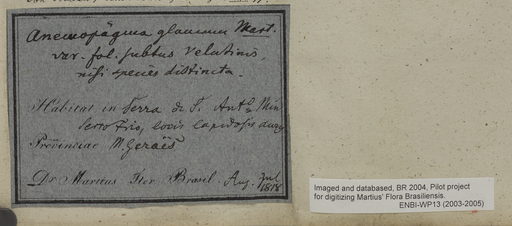 Anemopägma glaucum Mart.
var. fol. subtus velutinis,
nisi species distincta.
Habitat in Serra de S. Antº
Serro Frio, locis lapidosis
Provinciae M. Geraës
Dr Martius Iter Brasil. Aug. 1818
Imaged and databased, BR 2004, Pilot project
for digitizing Martius' Flora Brasiliensis.
ENBI-WP13 (2003-2005)